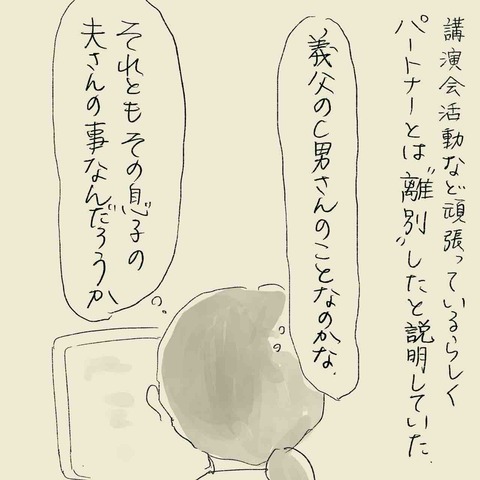 講演会活動など頑張っているらしく
パートナーとは“離別”したと説明していた.
義父のC男さんのことなのかな.
それともその息子の
夫さんの事なんだろうか